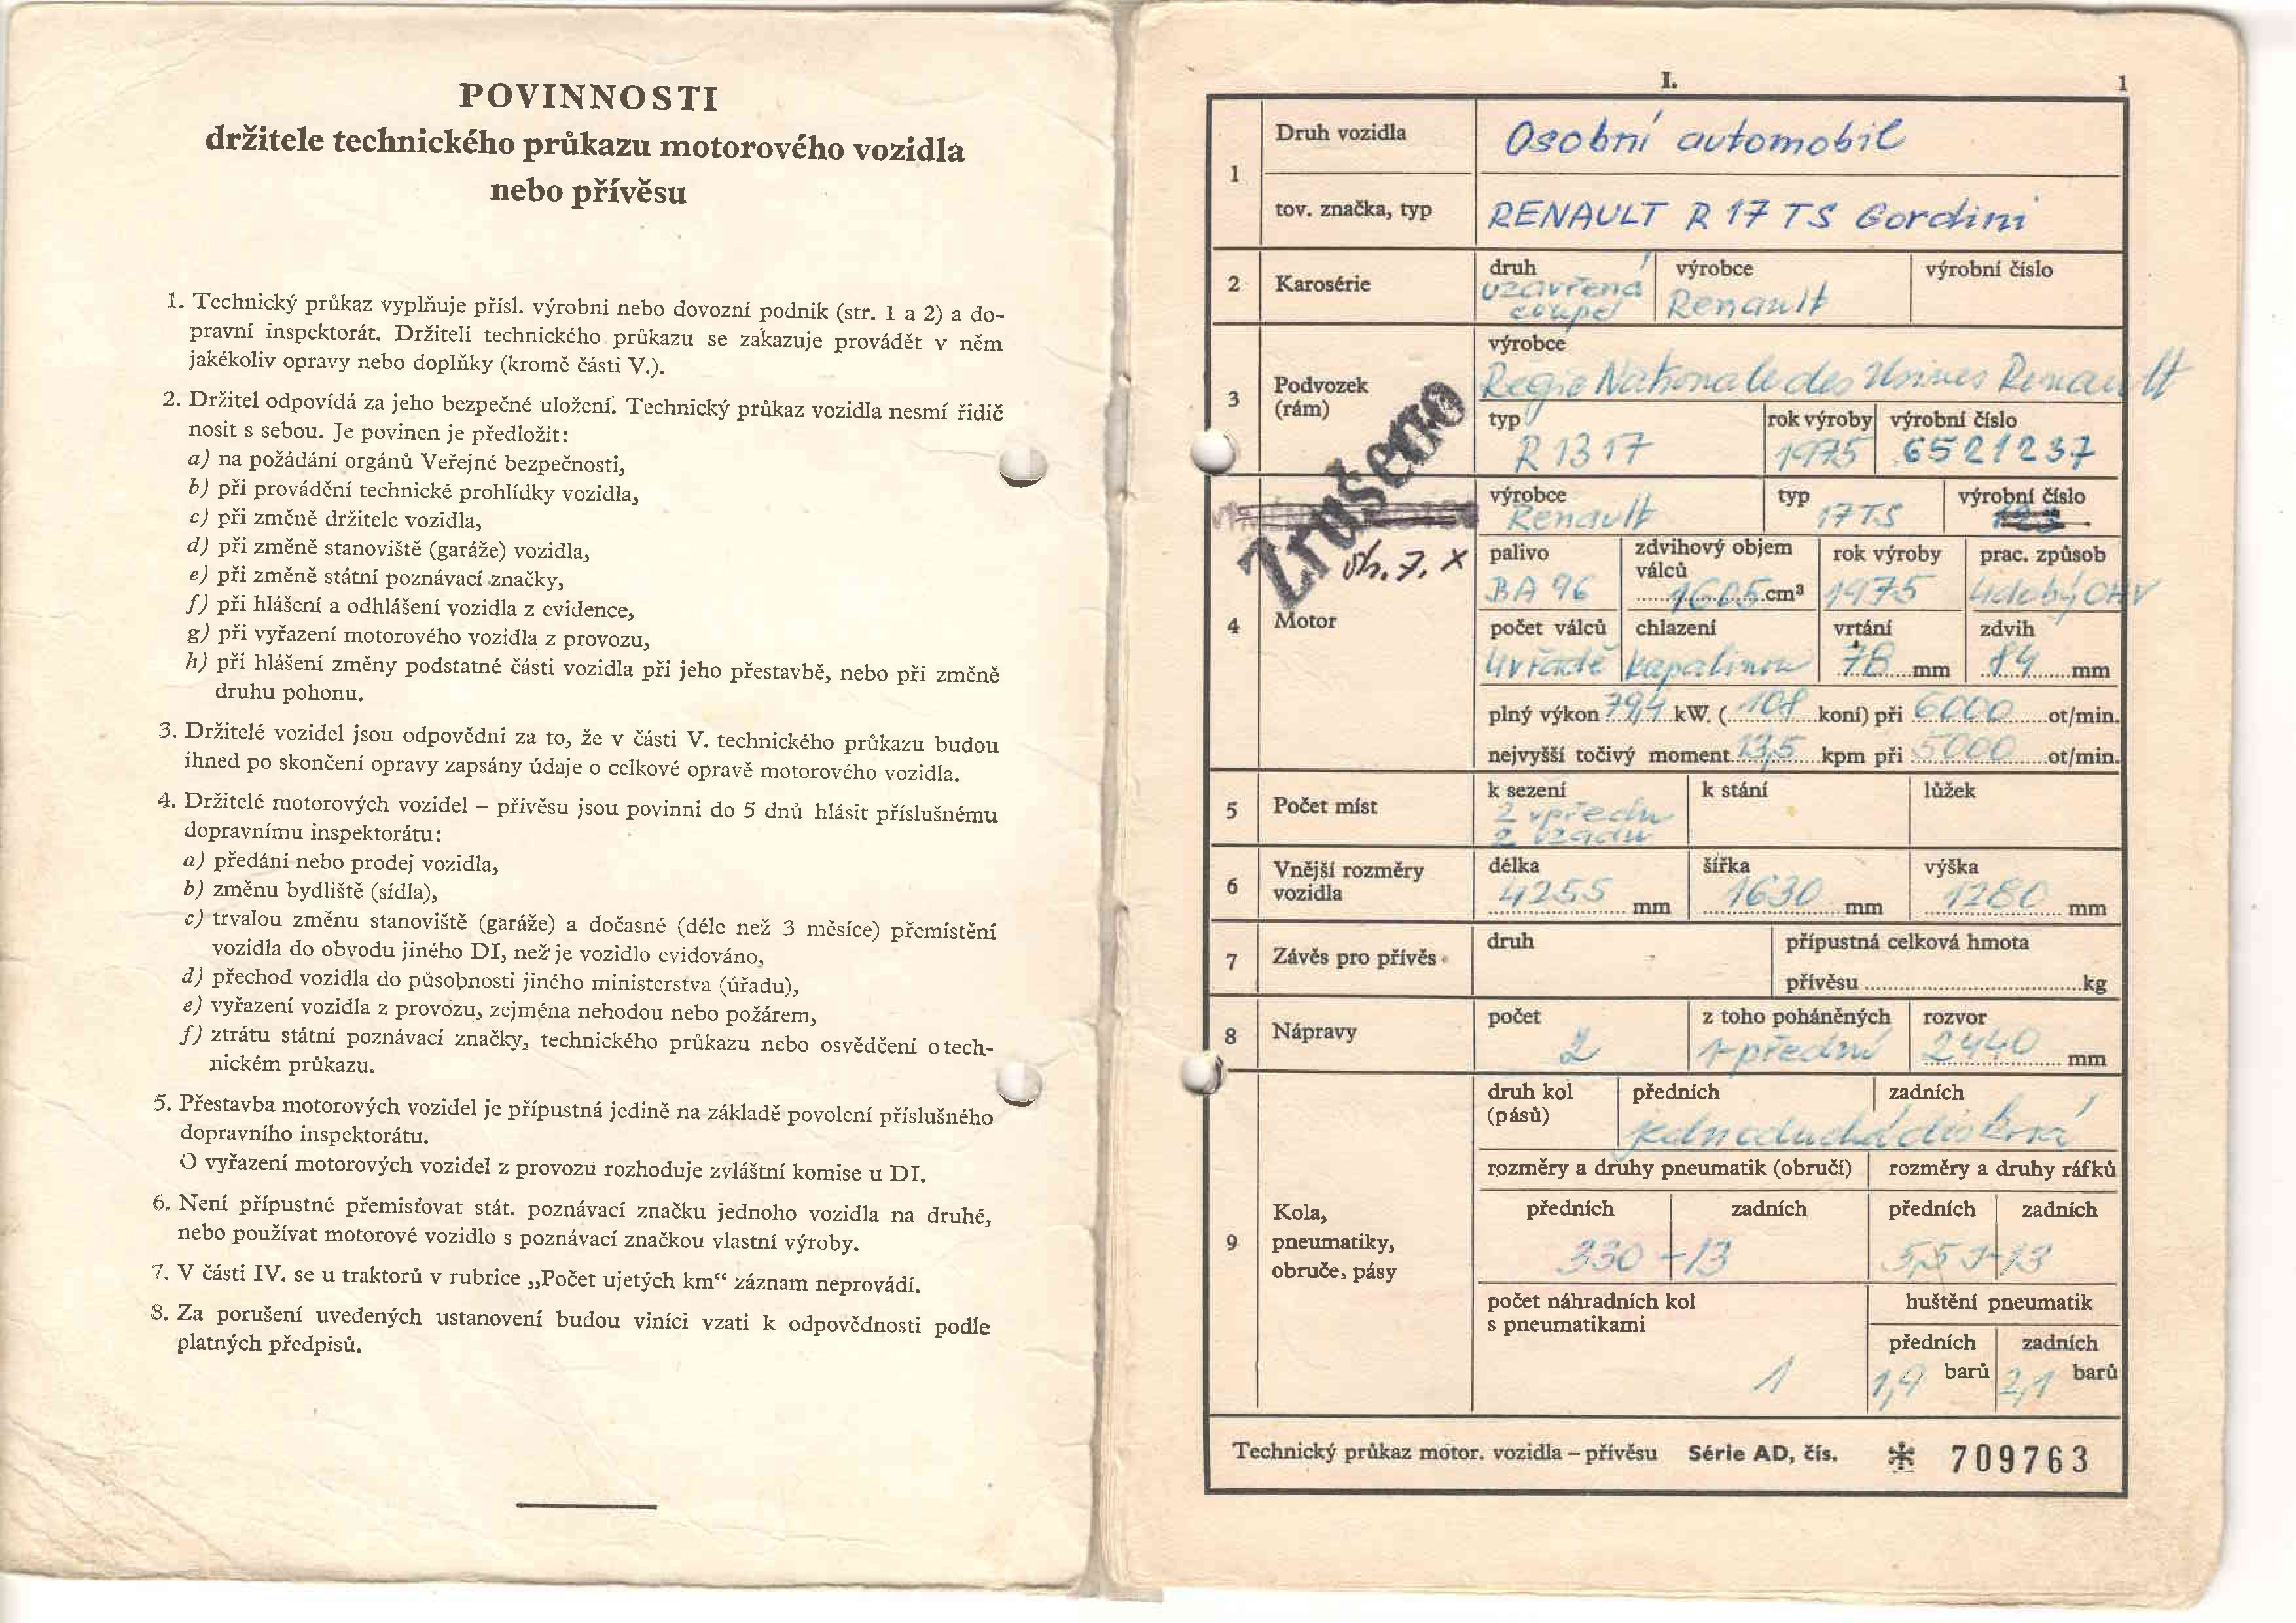 POVINNOSTI
držitele technického průkazu motorového vozidla
nebo přívěsu
1. Technický průkaz vyplňuje přísl. výrobní nebo dovozní podnik (str. 1 a 2) a do-
pravní inspektorát. Držiteli technického průkazu se zakazuje provádět v něm
jakékoliv opravy nebo doplňky (kromě části V.).
2. Držitel odpovídá za jeho bezpečné uložení. Technický průkaz vozidla nesmí řidič
nosit s sebou. Je povinen je předložit:
a) na požádání orgánů Veřejné bezpečnosti,
b) při provádění technické prohlídky vozidla,
c) při změně držitele vozidla,
d) při změně stanoviště (garáže) vozidla,
e) při změně státní poznávací značky,
f) při hlášení a odhlášení vozidla z evidence,
g) při vyřazení motorového vozidla z provozu,
h) při hlášení změny podstatné části vozidla při jeho přestavbě, nebo při změně
druhu pohonu.
3. Držitelé vozidel jsou odpovědni za to, že v části V. technického průkazu budou
ihned po skončení opravy zapsány údaje o celkové opravě motorového vozidla.
4. Držitelé motorových vozidel – přívěsu jsou povinni do 5 dnů hlásit příslušnému
dopravnímu inspektorátu:
a) předání nebo prodej vozidla,
b) změnu bydliště (sídla),
c) trvalou změnu stanoviště (garáže) a dočasné (déle než 3 měsíce) přemístění
vozidla do obvodu jiného DI, než je vozidlo evidováno,
d) přechod vozidla do působnosti jiného ministerstva (úřadu),
e) vyřazení vozidla z provozu, zejména nehodou nebo požárem,
f) ztrátu státní poznávací značky, technického průkazu nebo osvědčení o tech-
nickém průkazu.
5. Přestavba motorových vozidel je přípustná jedině na základě povolení příslušného
dopravního inspektorátu.
O vyřazení motorových vozidel z provozu rozhoduje zvláštní komise u DI.
6. Není přípustné přemisťovat stát. poznávací značku jednoho vozidla na druhé,
nebo používat motorové vozidlo s poznávací značkou vlastní výroby.
7. V části IV. se u traktorů v rubrice „Počet ujetých km“ záznam neprovádí.
8. Za porušení uvedených ustanovení budou viníci vzati k odpovědnosti podle
platných předpisů.
I. 1
1 Druh vozidla Osobní automobil
tov. značka, typ RENAULT R 17 TS Gordini
2 Karosérie druh výrobce výrobní číslo
uzavřená Renault
coupé
3 Podvozek (rám) výrobce
Regie Nationale des Usines Renault
typ rok výroby výrobní číslo
R 1317 1975 6521237
Zrušeno
4 Motor výrobce typ výrobní číslo
Renault 17 TS
palivo zdvihový objem válců rok výroby prac. způsob
BA 96 1605 cm³ 1975 4dobý OHV
počet válců chlazení vrtání zdvih
4 v řadě kapalinou 78 mm 84 mm
plný výkon 79,4 kW. (108 koní) při 6000 ot/min.
nejvyšší točivý moment 13,5 kpm při 5000 ot/min.
5 Počet míst k sezení k stání lůžek
2 vpředu
2 vzadu
6 Vnější rozměry vozidla délka šířka výška
4255 mm 1630 mm 1280 mm
7 Závěs pro přívěs druh přípustná celková hmota
přívěsu kg
8 Nápravy počet z toho poháněných rozvor
2 1-přední 2440 mm
9 Kola, pneumatiky, obruče, pásy
druh kol (pásů) předních zadních
jednoduchá disková
rozměry a druhy pneumatik (obručí) rozměry a druhy ráfků
předních zadních předních zadních
330-13 5,5 J-13
počet náhradních kol s pneumatikami huštění pneumatik
předních zadních
1 1,9 barů 2,1 barů
Technický průkaz motor. vozidla – přívěsu Série AD, čís. * 709763